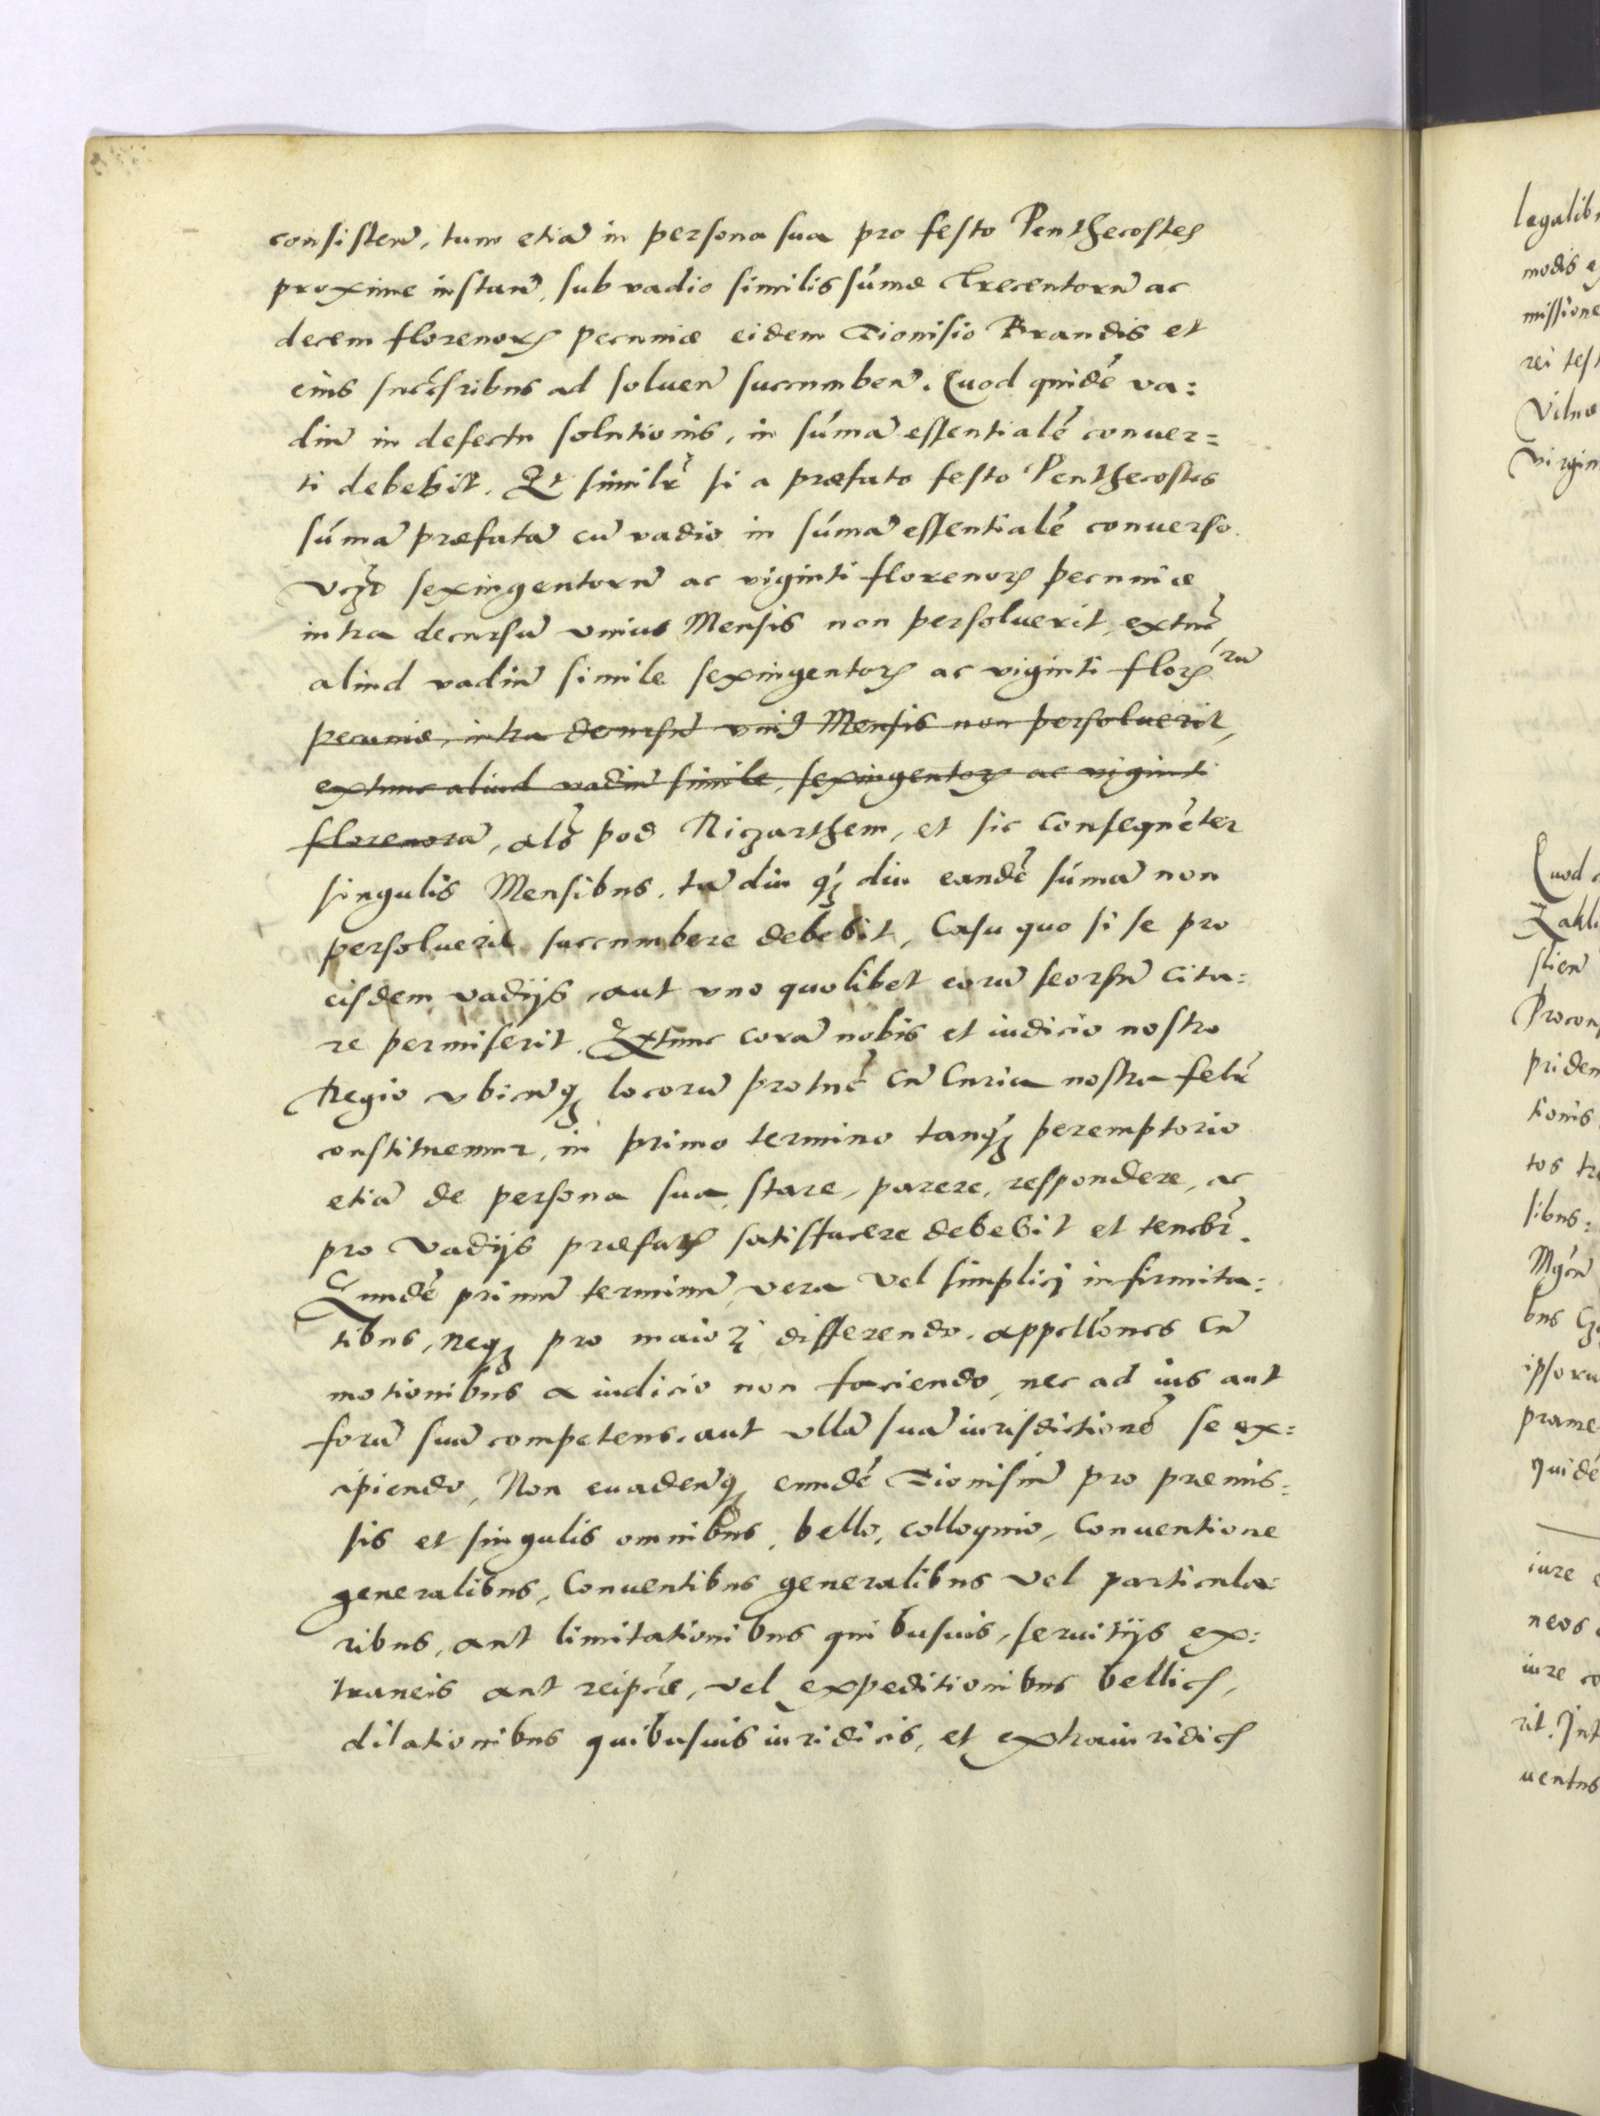 consisten̄, tum etiā in persona sua pro festo Penthecostes
proxime instan̄, sub vadio similis sūmæ Trecentorū ac
decem florenorꝝ pecuniæ eidem Dionisio Brandis et
eius succ̄sribus ad soluen̄ succumben̄. Quod quidē va:
diū in defectu solutionis, in sūmā essentialē conuer=
ti debebit. Et similr̄ si a præfato festo Penthecostes
sūmā præfatā cū vadio in sūmā essentialē conuerso
vꝫ sexingentorū ac viginti florenorꝝ pecuniæ
intra decursū vnius Mensis non persoluerit, extūc
aliud vadiū simile sexingentorꝝ ac viginti florꝝ rū
pecuniæ, intra decursū vniꝰ Mensis non persoluerit,
extunc aliud vadiū simile, sexingentorꝝ ac viginti
florenorū, als̄ pod Riczarthem, et sic consequēter
singulis Mensibus, tā diu qꝫ diu eandē sūmā non
persoluerit succumbere debebit, Casu quo si se pro
eisdem vadijs, aut vno quolibet eorū seorsū cita:
re permiserit. Extunc corā nobis et iudicio nostro
Regio vbicūqꝫ locorū protūc cū Curia nostra felr̄
constituemur, in primo termino tanqꝫ peremptorio
etiā de persona sua, stare, parere, respondere, ac
pro vadijs præfatꝭ satisfacere debebit et tenebr̄.
Eundē primū terminū, vera vel simplici infirmita:
tibus, neqꝫ pro maiori differendo, appellōnes cū
motionibus a iudicio non faciendo, nec ad ius aut
forū suū competens, aut vllā suā iurisdictionē se ex:
cipiendo, Non euadenqꝫ eundē Dionisiū pro præmis:
sis et singulis omnibus, bello, colloquio, Conuentione
generalibus, Conuentibus generalibus vel particula:
ribus, aut limitationibus quibusuis, seruitijs ex:
traneis aut reipcæ, vel expeditionibus bellicꝭ,
dilationibus quibusuis iuridicis, et extraiuridicꝭ
legalib
modis
missione
rei test
Vilnæ
Virgin
Quod
Procon
priden
tionis
tos
sibus:
bus
ipsoru
prame
quidē
iure
neos
iure co
rit. Int
uentus